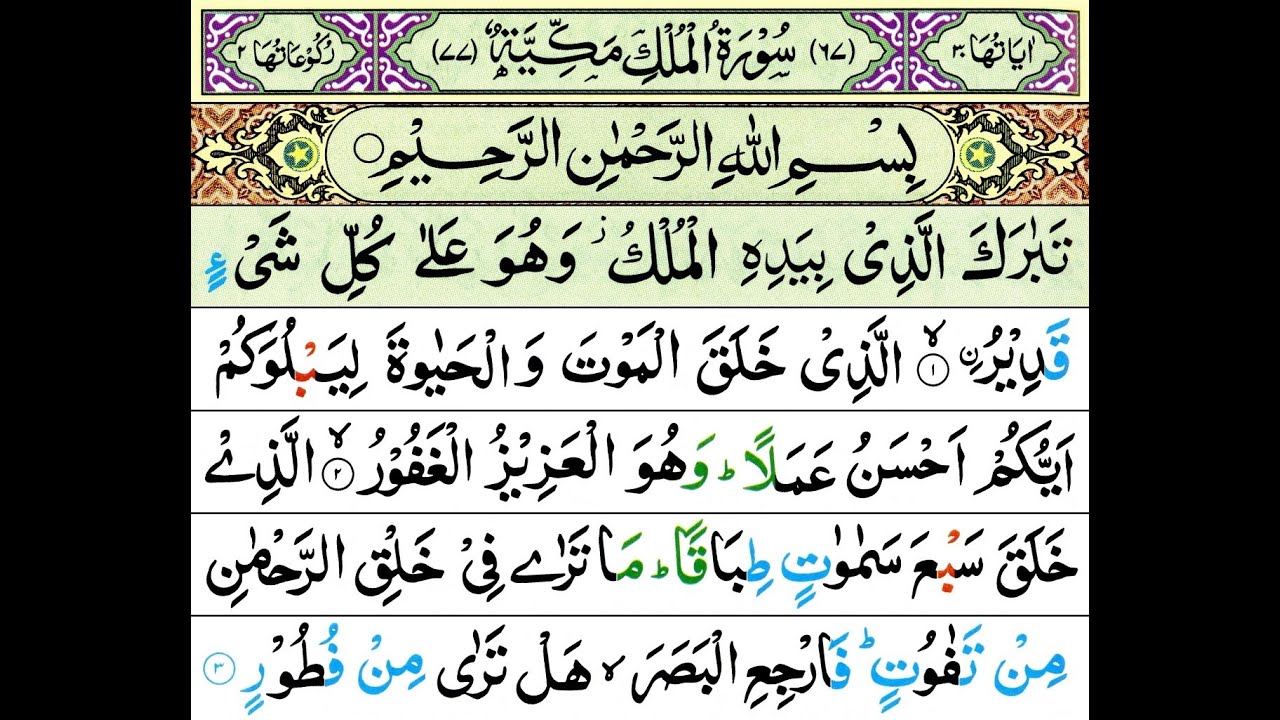 اٰيَاتُهَا ٣٠ (٦٧) سُوْرَةُ الْمُلْكِ مَكِّيَّةٌ (٧٧) رُكُوْعَاتُهَا ٢
بِسْمِ اللّٰهِ الرَّحْمٰنِ الرَّحِيْمِ ○
تَبٰرَكَ الَّذِىْ بِيَدِهِ الْمُلْكُ ز وَهُوَ عَلٰى كُلِّ شَىْءٍ
قَدِيْرُۨ ۙ ① الَّذِىْ خَلَقَ الْمَوْتَ وَالْحَيٰوةَ لِيَبْلُوَكُمْ
اَيُّكُمْ اَحْسَنُ عَمَلًا ؕ وَهُوَ الْعَزِيْزُ الْغَفُوْرُ ۙ ② الَّذِىْ
خَلَقَ سَبْعَ سَمٰوٰتٍ طِبَاقًا ؕ مَا تَرٰى فِىْ خَلْقِ الرَّحْمٰنِ
مِنْ تَفٰوُتٍ ؕ فَارْجِعِ الْبَصَرَ ۙ هَلْ تَرٰى مِنْ فُطُوْرٍ ③